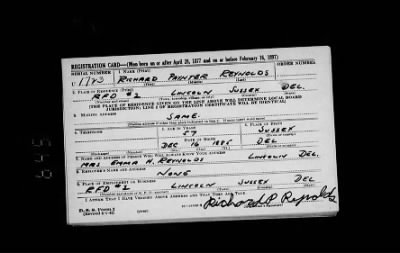 REGISTRATION CARD—(Men born on or after April 28, 1877 and on or before February 16, 1897)
SERIAL NUMBER 1. NAME (Print) ORDER NUMBER
U 1723 RICHARD PAINTER REYNOLDS
2. PLACE OF RESIDENCE (Print)
RFD #2 LINCOLN SUSSEX DEL.
[THE PLACE OF RESIDENCE GIVEN ON THE LINE ABOVE WILL DETERMINE LOCAL BOARD
JURISDICTION; LINE 2 OF REGISTRATION CERTIFICATE WILL BE IDENTICAL]
3. MAILING ADDRESS
SAME.
4. TELEPHONE 5. AGE IN YEARS 6. PLACE OF BIRTH
57 SUSSEX
DATE OF BIRTH
DEC 16 1885 DEL
7. NAME AND ADDRESS OF PERSON WHO WILL ALWAYS KNOW YOUR ADDRESS
MRS EMMA H. REYNOLDS LINCOLN DEL.
8. EMPLOYER'S NAME AND ADDRESS
NONE
9. PLACE OF EMPLOYMENT OR BUSINESS
RFD #2 LINCOLN SUSSEX DEL
I AFFIRM THAT I HAVE VERIFIED ABOVE ANSWERS AND THAT THEY ARE TRUE.
D. S. S. Form 1
Richard P Reynolds